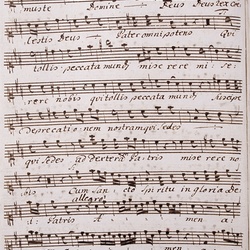 muste Domine Deus Deus Rex Coe
lestis Deus Pater omnipotens Qui
tollis peccata mundi mise rere mi se:
rere nobis qui tollis peccata mundi suscipe
Deprecati: onem nostram qui Sedes
qui Sedes ad dexteram Patris mise rere no
bis Cum San: cto Spiritu in gloria De
allegro
i: Patris A men a